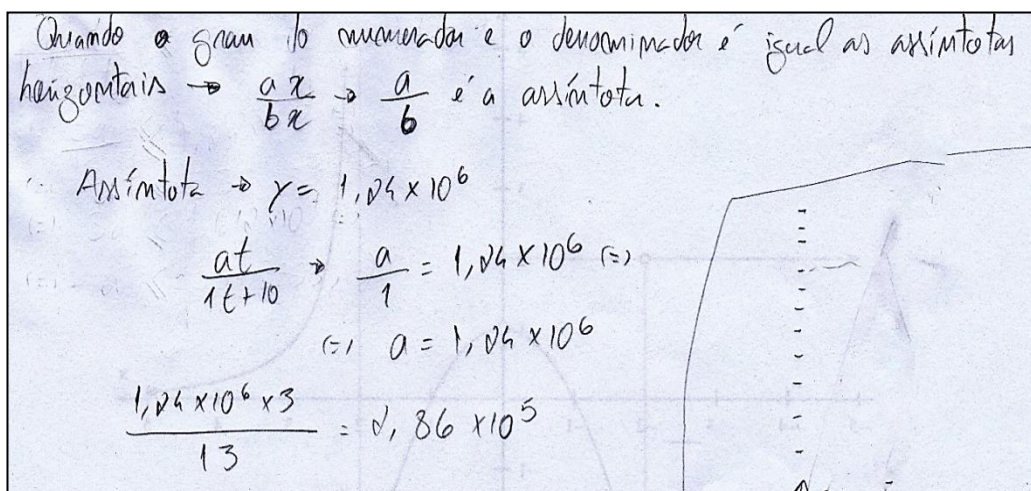 Quando o grau do numerador e o denominador é igual as assíntotas
horizontais → ax/bx → a/b é a assíntota.
Assíntota → y = 1,24 × 10^6
at/1t+10 → a/1 = 1,24 × 10^6 (=)
(=) a = 1,24 × 10^6
1,24 × 10^6 × 3/13 = 2,86 × 10^5